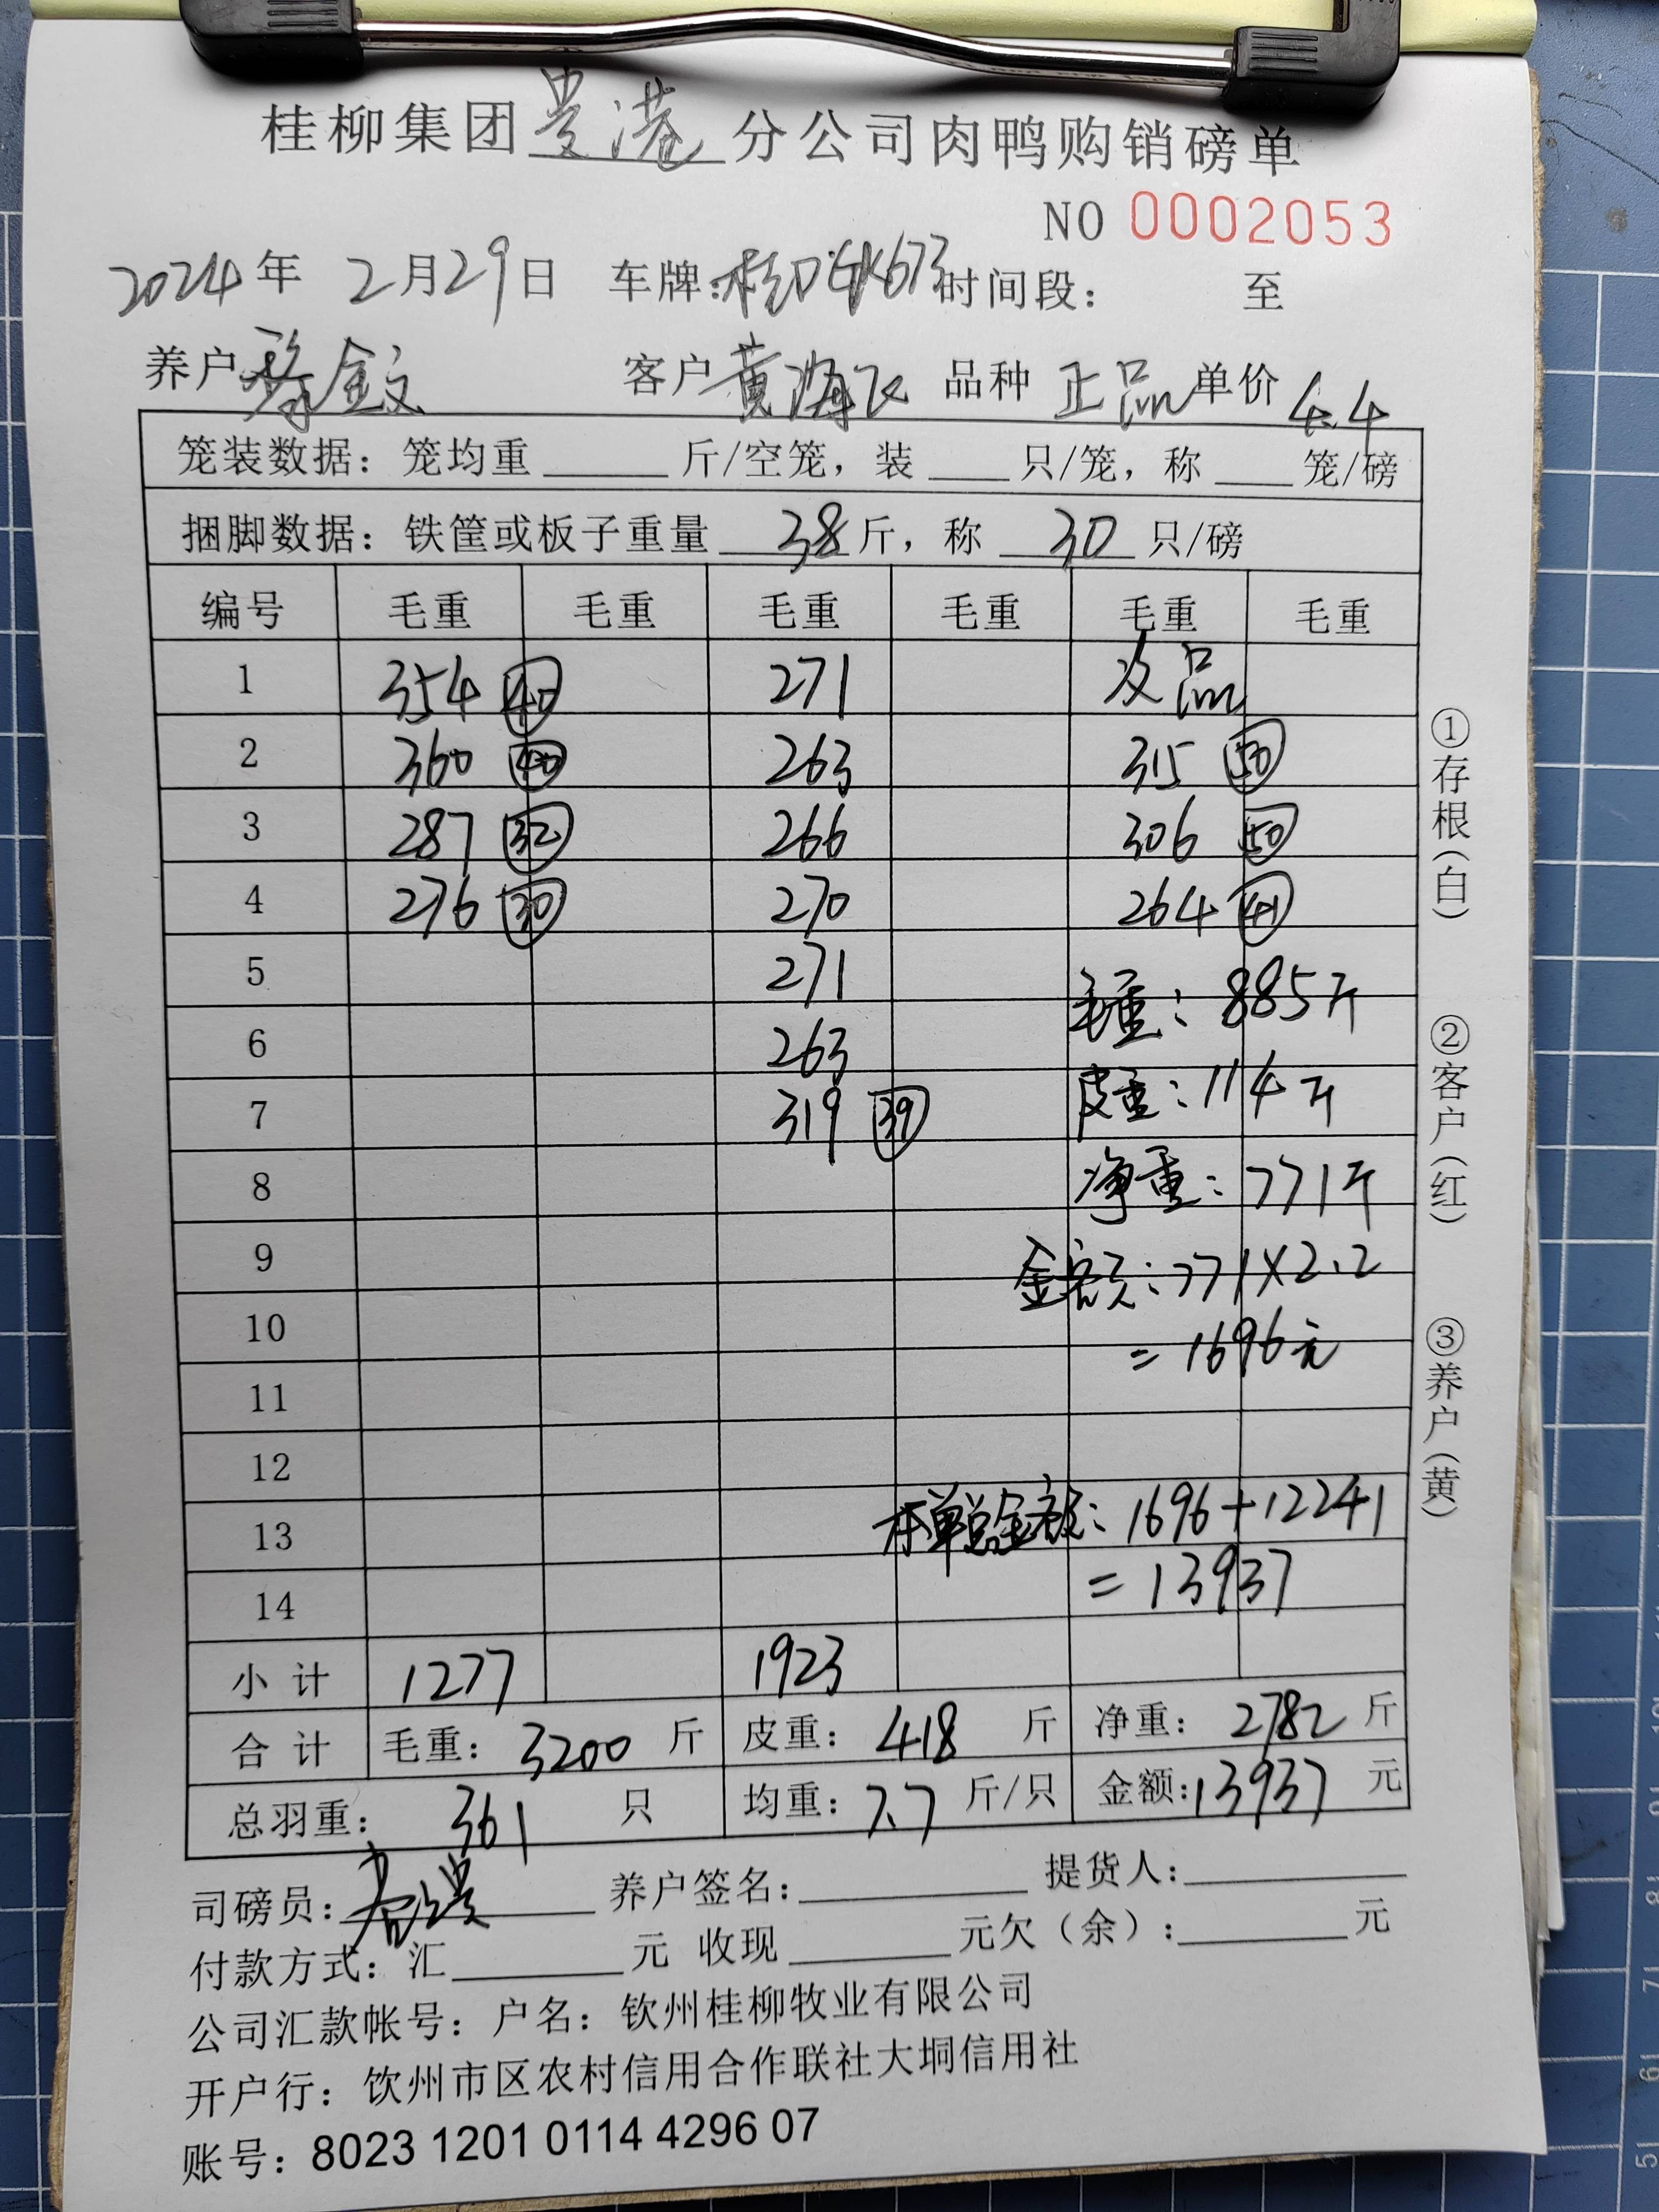 桂柳集团贵港分公司肉鸭购销磅单
NO 0002053
2024年 2月29日 车牌: 时间段: 至
养户 金文 客户 黄海飞 品种 正品 单价 4.4
笼装数据: 笼均重 斤/空笼, 装 只/笼, 称 笼/磅
捆脚数据: 铁筐或板子重量 38 斤, 称 30 只/磅
编号 毛重 毛重 毛重 毛重 毛重 毛重
1 354 40 271 次品
2 360 40 263 315 50
3 287 32 266 306 50
4 276 30 270 264 41
5 271 毛重: 885斤
6 263
7 319 39 皮重: 114斤
8 净重: 771斤
9 金额: 771×2.2
10 = 1696元
11
12
13 本单总金额: 1696+12241
14 = 13937
小计 1277 1923
合计 毛重: 3200 斤 皮重: 418 斤 净重: 2782 斤
总羽重: 361 只 均重: 7.7 斤/只 金额: 13937 元
司磅员: 养户签名: 提货人:
付款方式: 汇 元 收现 元欠（余）: 元
公司汇款帐号: 户名: 钦州桂柳牧业有限公司
开户行: 钦州市区农村信用合作联社大垌信用社
账号: 8023 1201 0114 4296 07
①存根（白）
②客户（红）
③养户（黄）